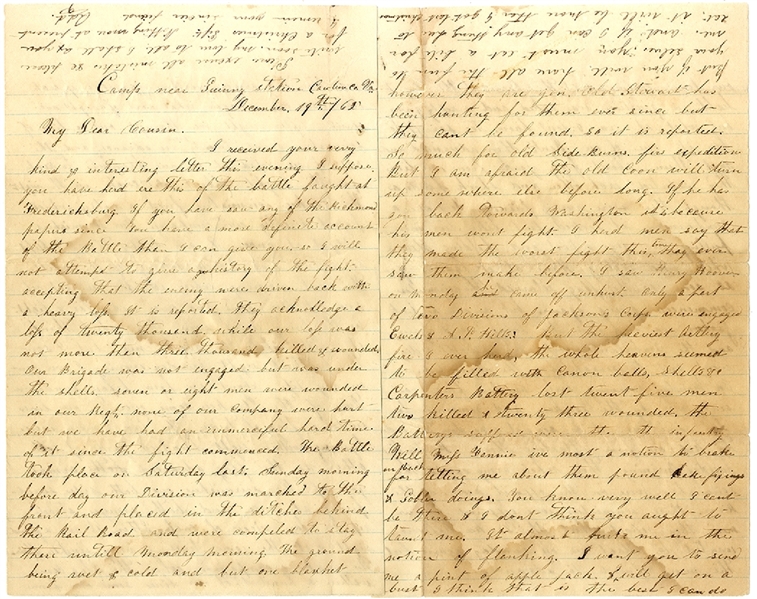 Camp near Guinny Station Caroline Co. Va
December, 19th/62
My Dear Cousin.
I received your very
kind & interesting letter this evening I suppose
you have herd ere this of the battle faught at
Fredericksburg If you have saw any of the Richmond
papers since you have a more definite account
of the Battle than I can give you. so I will
not attempt to give a history of the fight.
accepting that the enemy were driven back with
a heavy loss. It is reported. they acknoledge a
loss of twenty thousand, while our loss was
not more than three thousand killed & wounded,
Our Brigade was not engaged but was under
the shells. seven or eight men were wounded
in our Regt. none of our Company were hurt
but we have had an unmerciful hard time
of it since the fight commenced. The Battle
took place on Saturday last. Sunday morning
before day our Division was marched to the
front and placed in the ditches behind
the Rail Road and were compeled to stay
there untill Monday morning. the ground
being wet & cold and but one blanket
however they are gon. Old Stewart has
been hunting for them ever since but
they cant be found, so it is reported.
So much for old Side Burns. fire expedition
But I am afraid the old Coon will turn
up some where else before long. If he has
gon back Towards Washington it is because
his men wont fight. I herd men say that
they made the worst fight this time they ever
saw them make before. I saw Hoover
on Monday came off unhurt. Only a part
of two Divisions of Jacksons Corps were engaged
Ewels & A. P. Hills. But the heaviest Artlery
fire I ever herd, the whole heavens seemed
to be filled with canon balls, shells &c
Carpenters Battery lost twenty five men
two killed & twenty three wounded. the
Batterys suffered more the infantry
Well Miss Jennie ive most a notion to brake
for telling me about them pound cake fixings
& doings. You know very well I cant
be there & I dont think you aught to
taunt me. It almost puts me in the
notion of flanking. I want you to send
me a pint of apple jack & will get on a
bust I think that is the best I can do
but if you will have all the fun to
your selves you must eat a bite for
me. and if I can get any thing to
eat it will be more than I got last christmas
Please excuse all mistakes & please
write soon. my love to all I shall ask you
for a Christmas gift. Nothing more at present
I remain your sincere friend